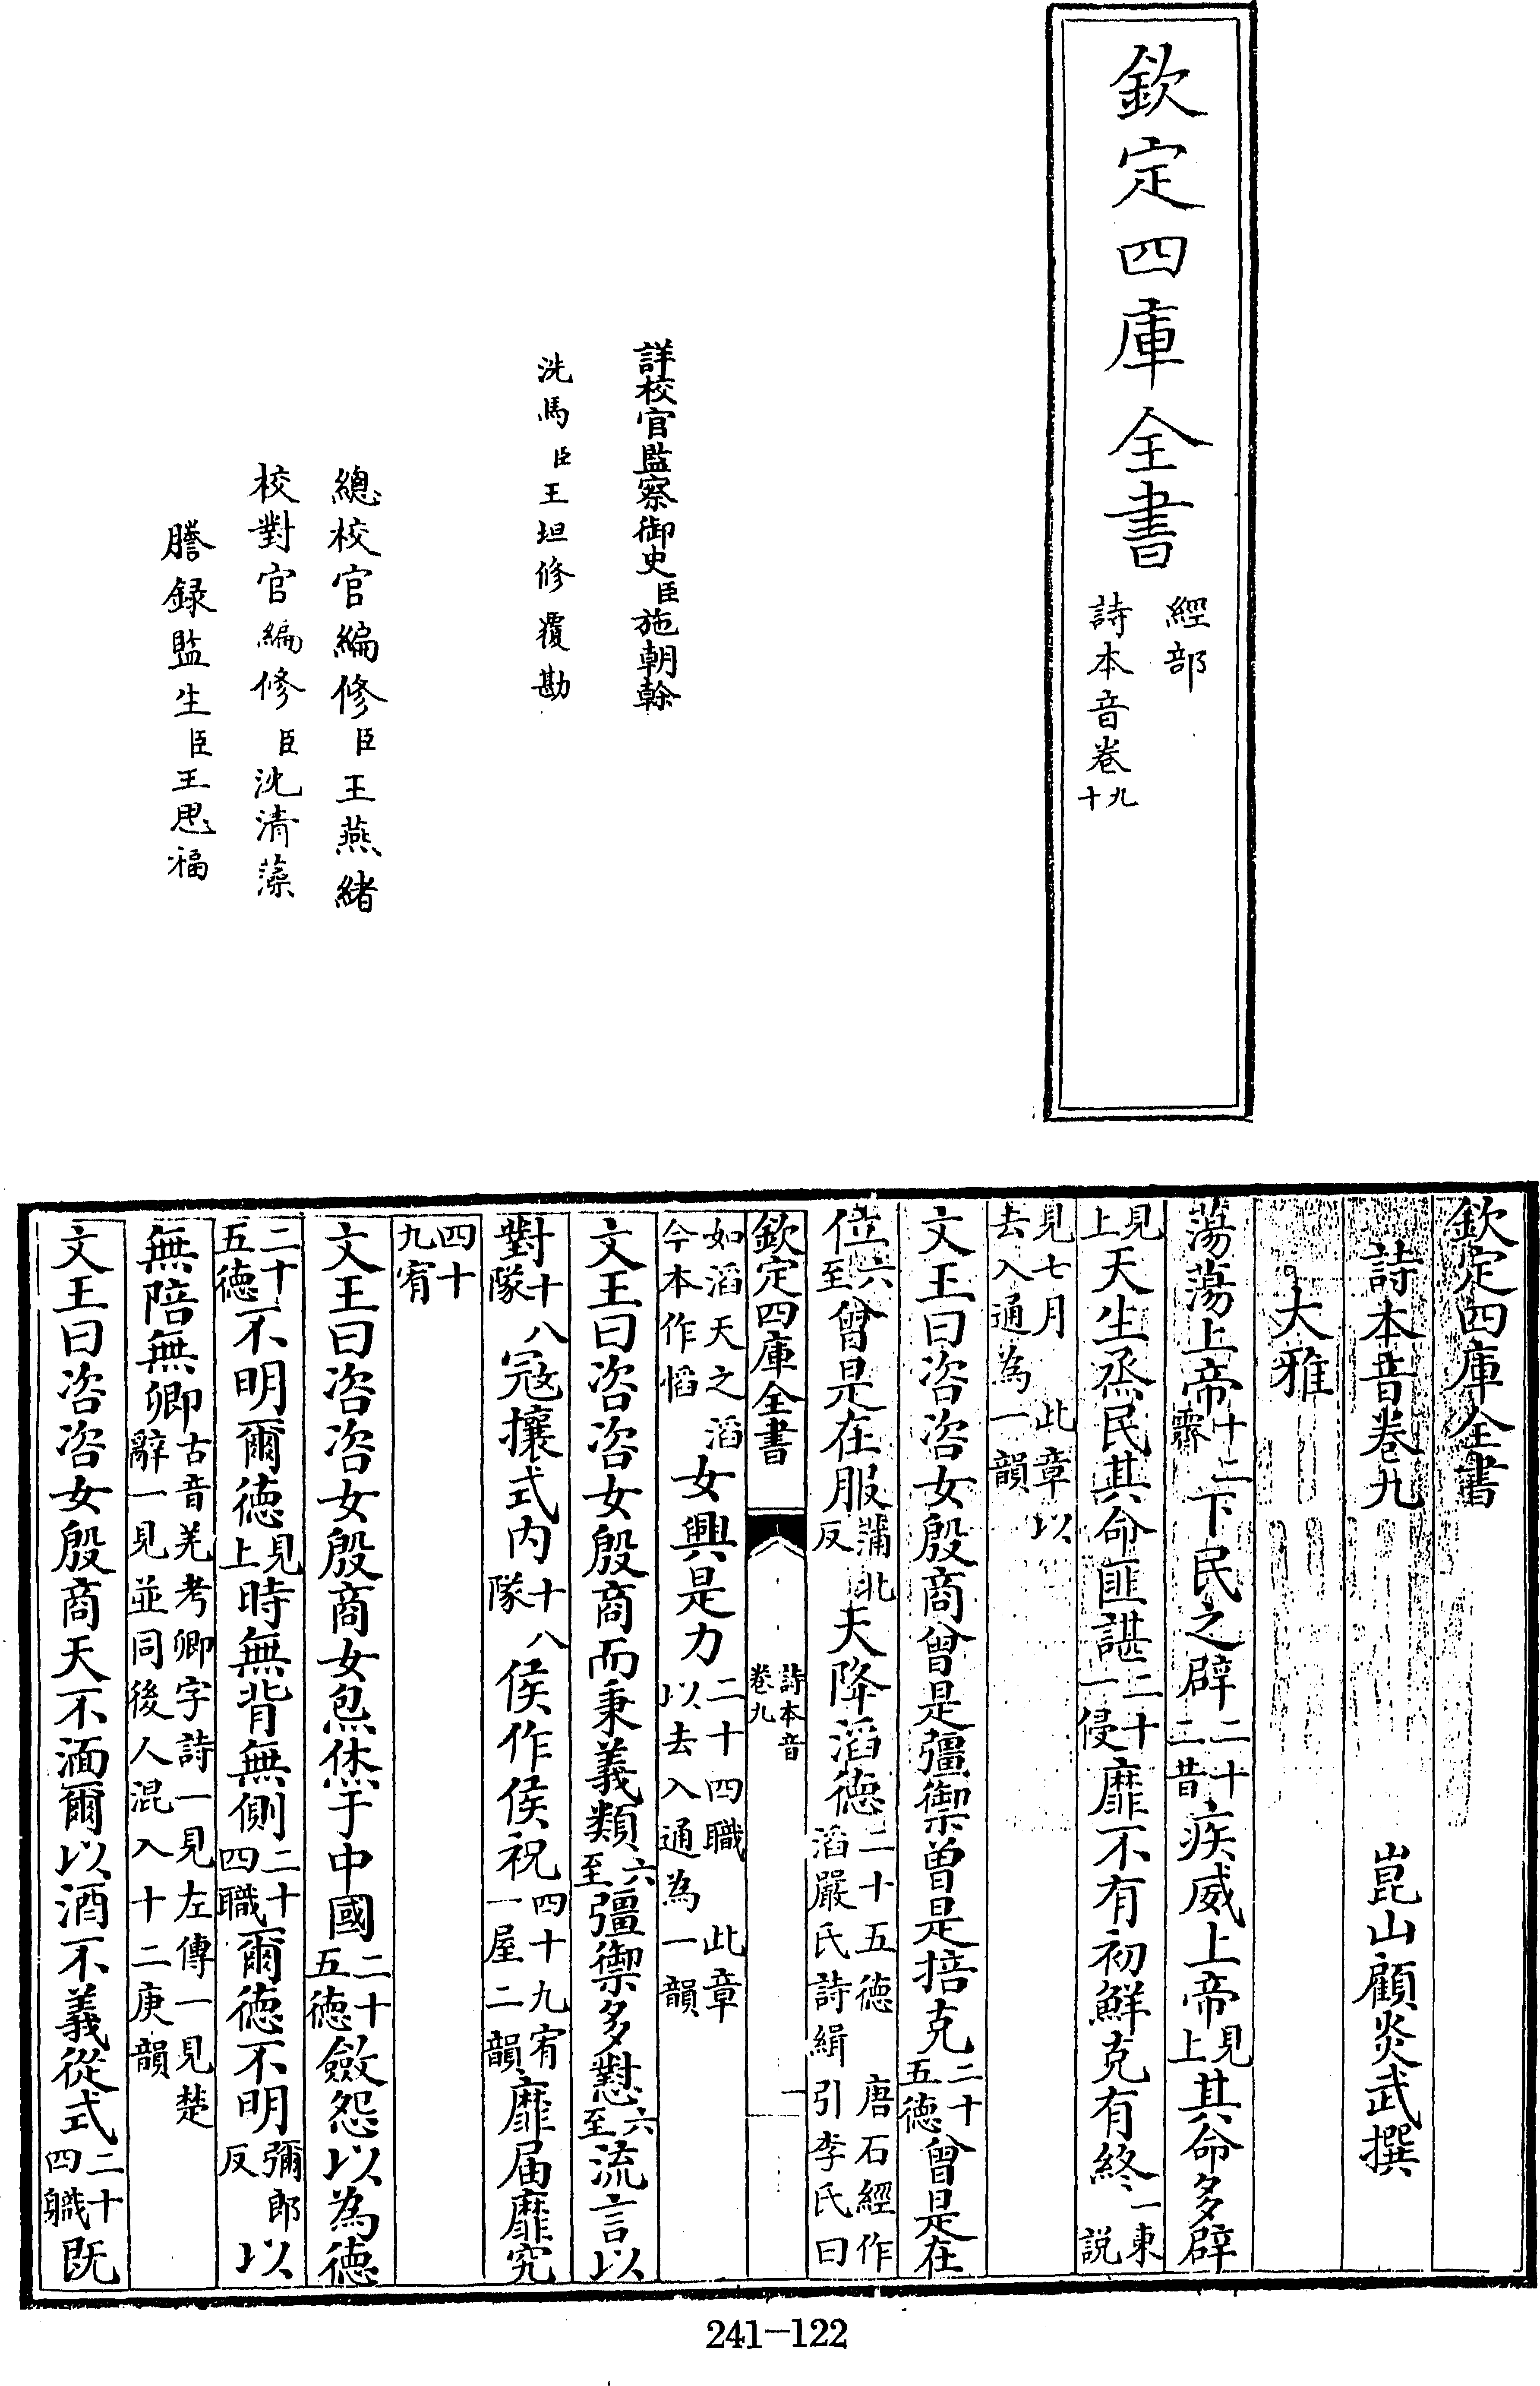 欽定四庫全書
經部
詩本音卷九
十
詳校官監察御史臣施朝幹
洗馬臣王坦修覆勘
總校官編修臣王燕緒
校對官編修臣沈清藻
謄錄監生臣王思福
欽定四庫全書
詩本音卷九
崑山顧炎武撰
大雅
蕩蕩上帝十二霽下民之辟二十二昔疾威上帝見上其命多辟
見上天生烝民其命匪諶二十一侵靡不有初鮮克有終一東說
見七月 此章以去入通為一韻
文王曰咨咨女殷商曾是彊禦曽是掊克二十五德曾是在
位六至曾是在服蒲北反天降滔德二十五德 唐石經作滔嚴氏詩緝引李氏曰
欽定四庫全書
詩本音
卷九
一
如滔天之滔今本作慆女興是力二十四職 此章以去入通為一韻
文王曰咨咨女殷商而秉義類六至彊禦多懟六至流言以
對十八隊寇攘式內十八隊侯作侯祝四十九宥一屋二韻靡届靡究
四十九宥
文王曰咨咨女殷商女炰烋于中國二十五德斂怨以為德
二十五德不明爾德見上時無背無側二十四職爾德不明彌郎反以
無陪無卿古音羌考卿字詩一見左傳一見楚辭一見並同後人混入十二庚韻
文王曰咨咨女殷商天不湎爾以酒不義從式二十四職既
241-122